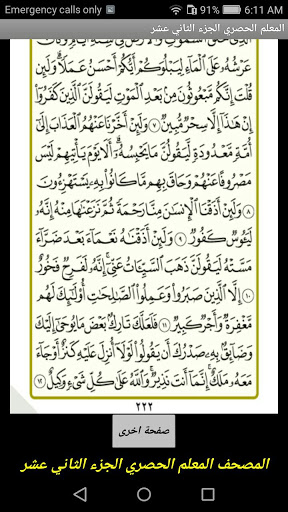 Emergency calls only 76% 6:11 AM
المعلم الحصري الجزء الثاني عشر
ٱلَّذِى خَلَقَ ٱلسَّمَٰوَٰتِ وَٱلْأَرْضَ فِى سِتَّةِ أَيَّامٍ وَكَانَ
عَرْشُهُۥ عَلَى ٱلْمَآءِ لِيَبْلُوَكُمْ أَيُّكُمْ أَحْسَنُ عَمَلًا ۗ وَلَئِن
قُلْتَ إِنَّكُم مَّبْعُوثُونَ مِنۢ بَعْدِ ٱلْمَوْتِ لَيَقُولَنَّ ٱلَّذِينَ كَفَرُوٓا۟
إِنْ هَٰذَآ إِلَّا سِحْرٌ مُّبِينٌ ٧ وَلَئِنْ أَخَّرْنَا عَنْهُمُ ٱلْعَذَابَ إِلَىٰٓ
أُمَّةٍ مَّعْدُودَةٍ لَّيَقُولُنَّ مَا يَحْبِسُهُۥٓ ۗ أَلَا يَوْمَ يَأْتِيهِمْ لَيْسَ
مَصْرُوفًا عَنْهُمْ وَحَاقَ بِهِم مَّا كَانُوا۟ بِهِۦ يَسْتَهْزِءُونَ
٨ وَلَئِنْ أَذَقْنَا ٱلْإِنسَٰنَ مِنَّا رَحْمَةً ثُمَّ نَزَعْنَٰهَا مِنْهُ إِنَّهُۥ
لَيَـُٔوسٌ كَفُورٌ ٩ وَلَئِنْ أَذَقْنَٰهُ نَعْمَآءَ بَعْدَ ضَرَّآءَ
مَسَّتْهُ لَيَقُولَنَّ ذَهَبَ ٱلسَّيِّـَٔاتُ عَنِّىٓ ۚ إِنَّهُۥ لَفَرِحٌ فَخُورٌ
١٠ إِلَّا ٱلَّذِينَ صَبَرُوا۟ وَعَمِلُوا۟ ٱلصَّٰلِحَٰتِ أُو۟لَٰٓئِكَ لَهُم
مَّغْفِرَةٌ وَأَجْرٌ كَبِيرٌ ١١ فَلَعَلَّكَ تَارِكٌۢ بَعْضَ مَا يُوحَىٰٓ إِلَيْكَ
وَضَآئِقٌۢ بِهِۦ صَدْرُكَ أَن يَقُولُوا۟ لَوْلَآ أُنزِلَ عَلَيْهِ كَنزٌ أَوْ جَآءَ
مَعَهُۥ مَلَكٌ ۚ إِنَّمَآ أَنتَ نَذِيرٌ ۚ وَٱللَّهُ عَلَىٰ كُلِّ شَىْءٍ وَكِيلٌ ١٢
٢٢٢
صفحة اخرى
المصحف المعلم الحصري الجزء الثاني عشر